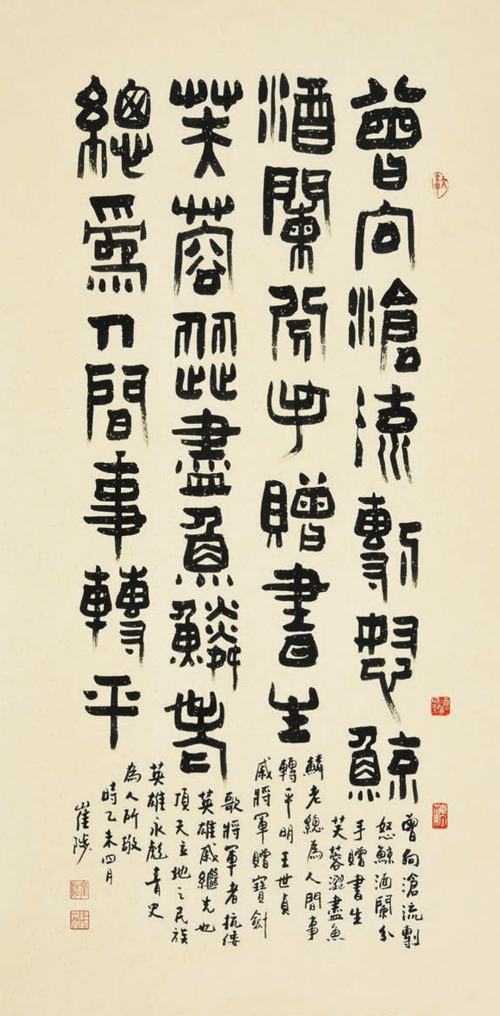 曾向滄流剸怒鯨
酒闌分手贈書生
芙蓉澀盡魚鱗老
總爲人間事轉平
曾向滄流剸
怒鯨酒闌分
手贈書生
芙蓉澀盡魚
鱗老總為人間事
轉平明王世貞
戚將軍贈寶劍
歌將軍者抗倭
英雄戚繼光也
頂天立地之民族
英雄永彪青史
為人所敬
時乙未四月
崔陟